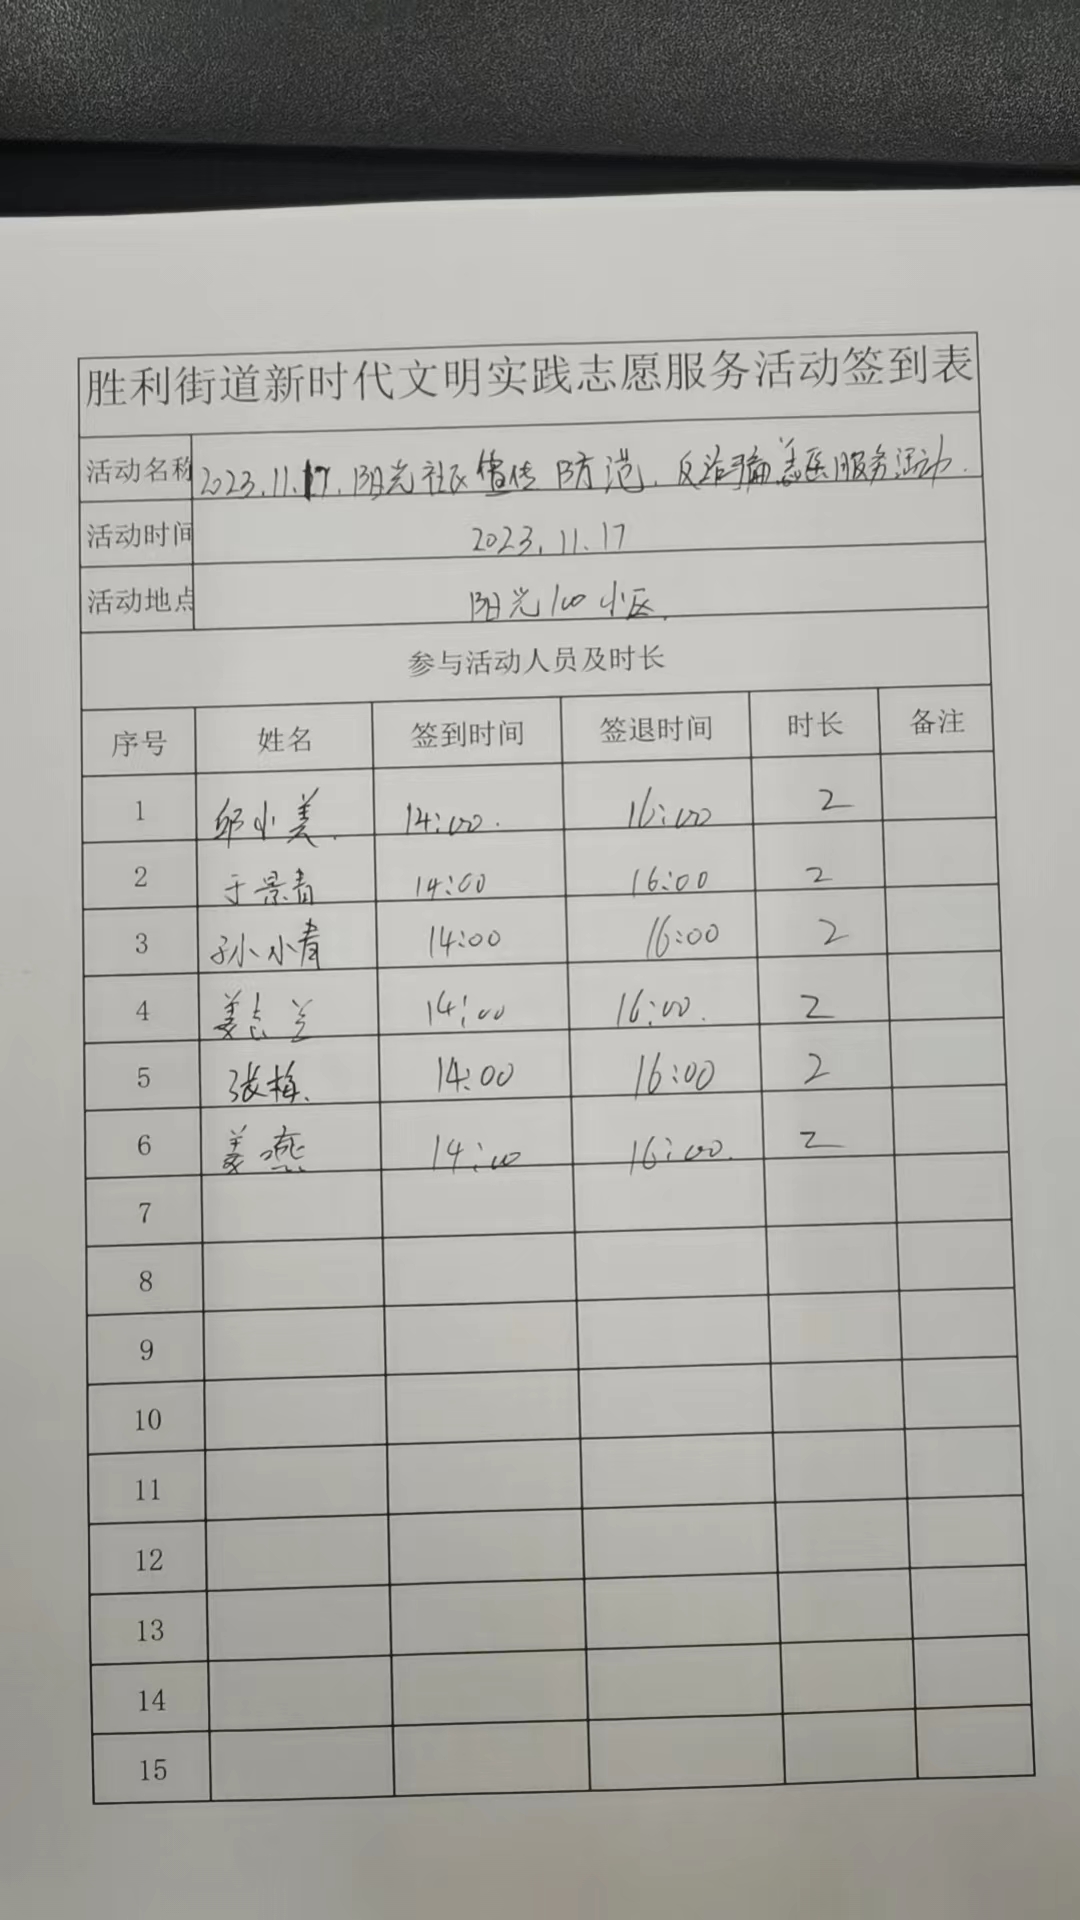 胜利街道新时代文明实践志愿服务活动签到表
活动名称 2023.11.17.阳光社区宣传防范.反诈骗志愿服务活动.
活动时间 2023.11.17
活动地点 阳光100小区.
参与活动人员及时长
序号 姓名 签到时间 签退时间 时长 备注
1 邹小美. 14:00. 16:00 2
2 于景青 14:00 16:00 2
3 孙小青 14:00 16:00 2
4 姜志兰 14:00 16:00. 2
5 张梅. 14:00 16:00 2
6 姜燕 14:00 16:00. 2
7
8
9
10
11
12
13
14
15